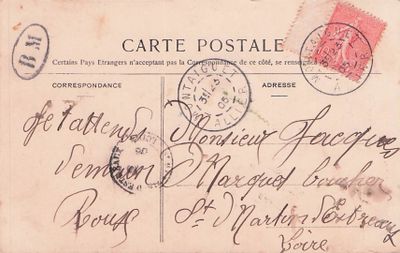 BM
CARTE POSTALE
Certains Pays Etrangers n'acceptant pas la Correspondance de ce côté, se rensei
CORRESPONDANCE
ADRESSE
MONTAIGUET
ALLIER
MONTAIGUET
A
Je t'attends
demain
Roux
Monsieur Jacques
Marques boucher
St Martin d'Estreaux
Loire